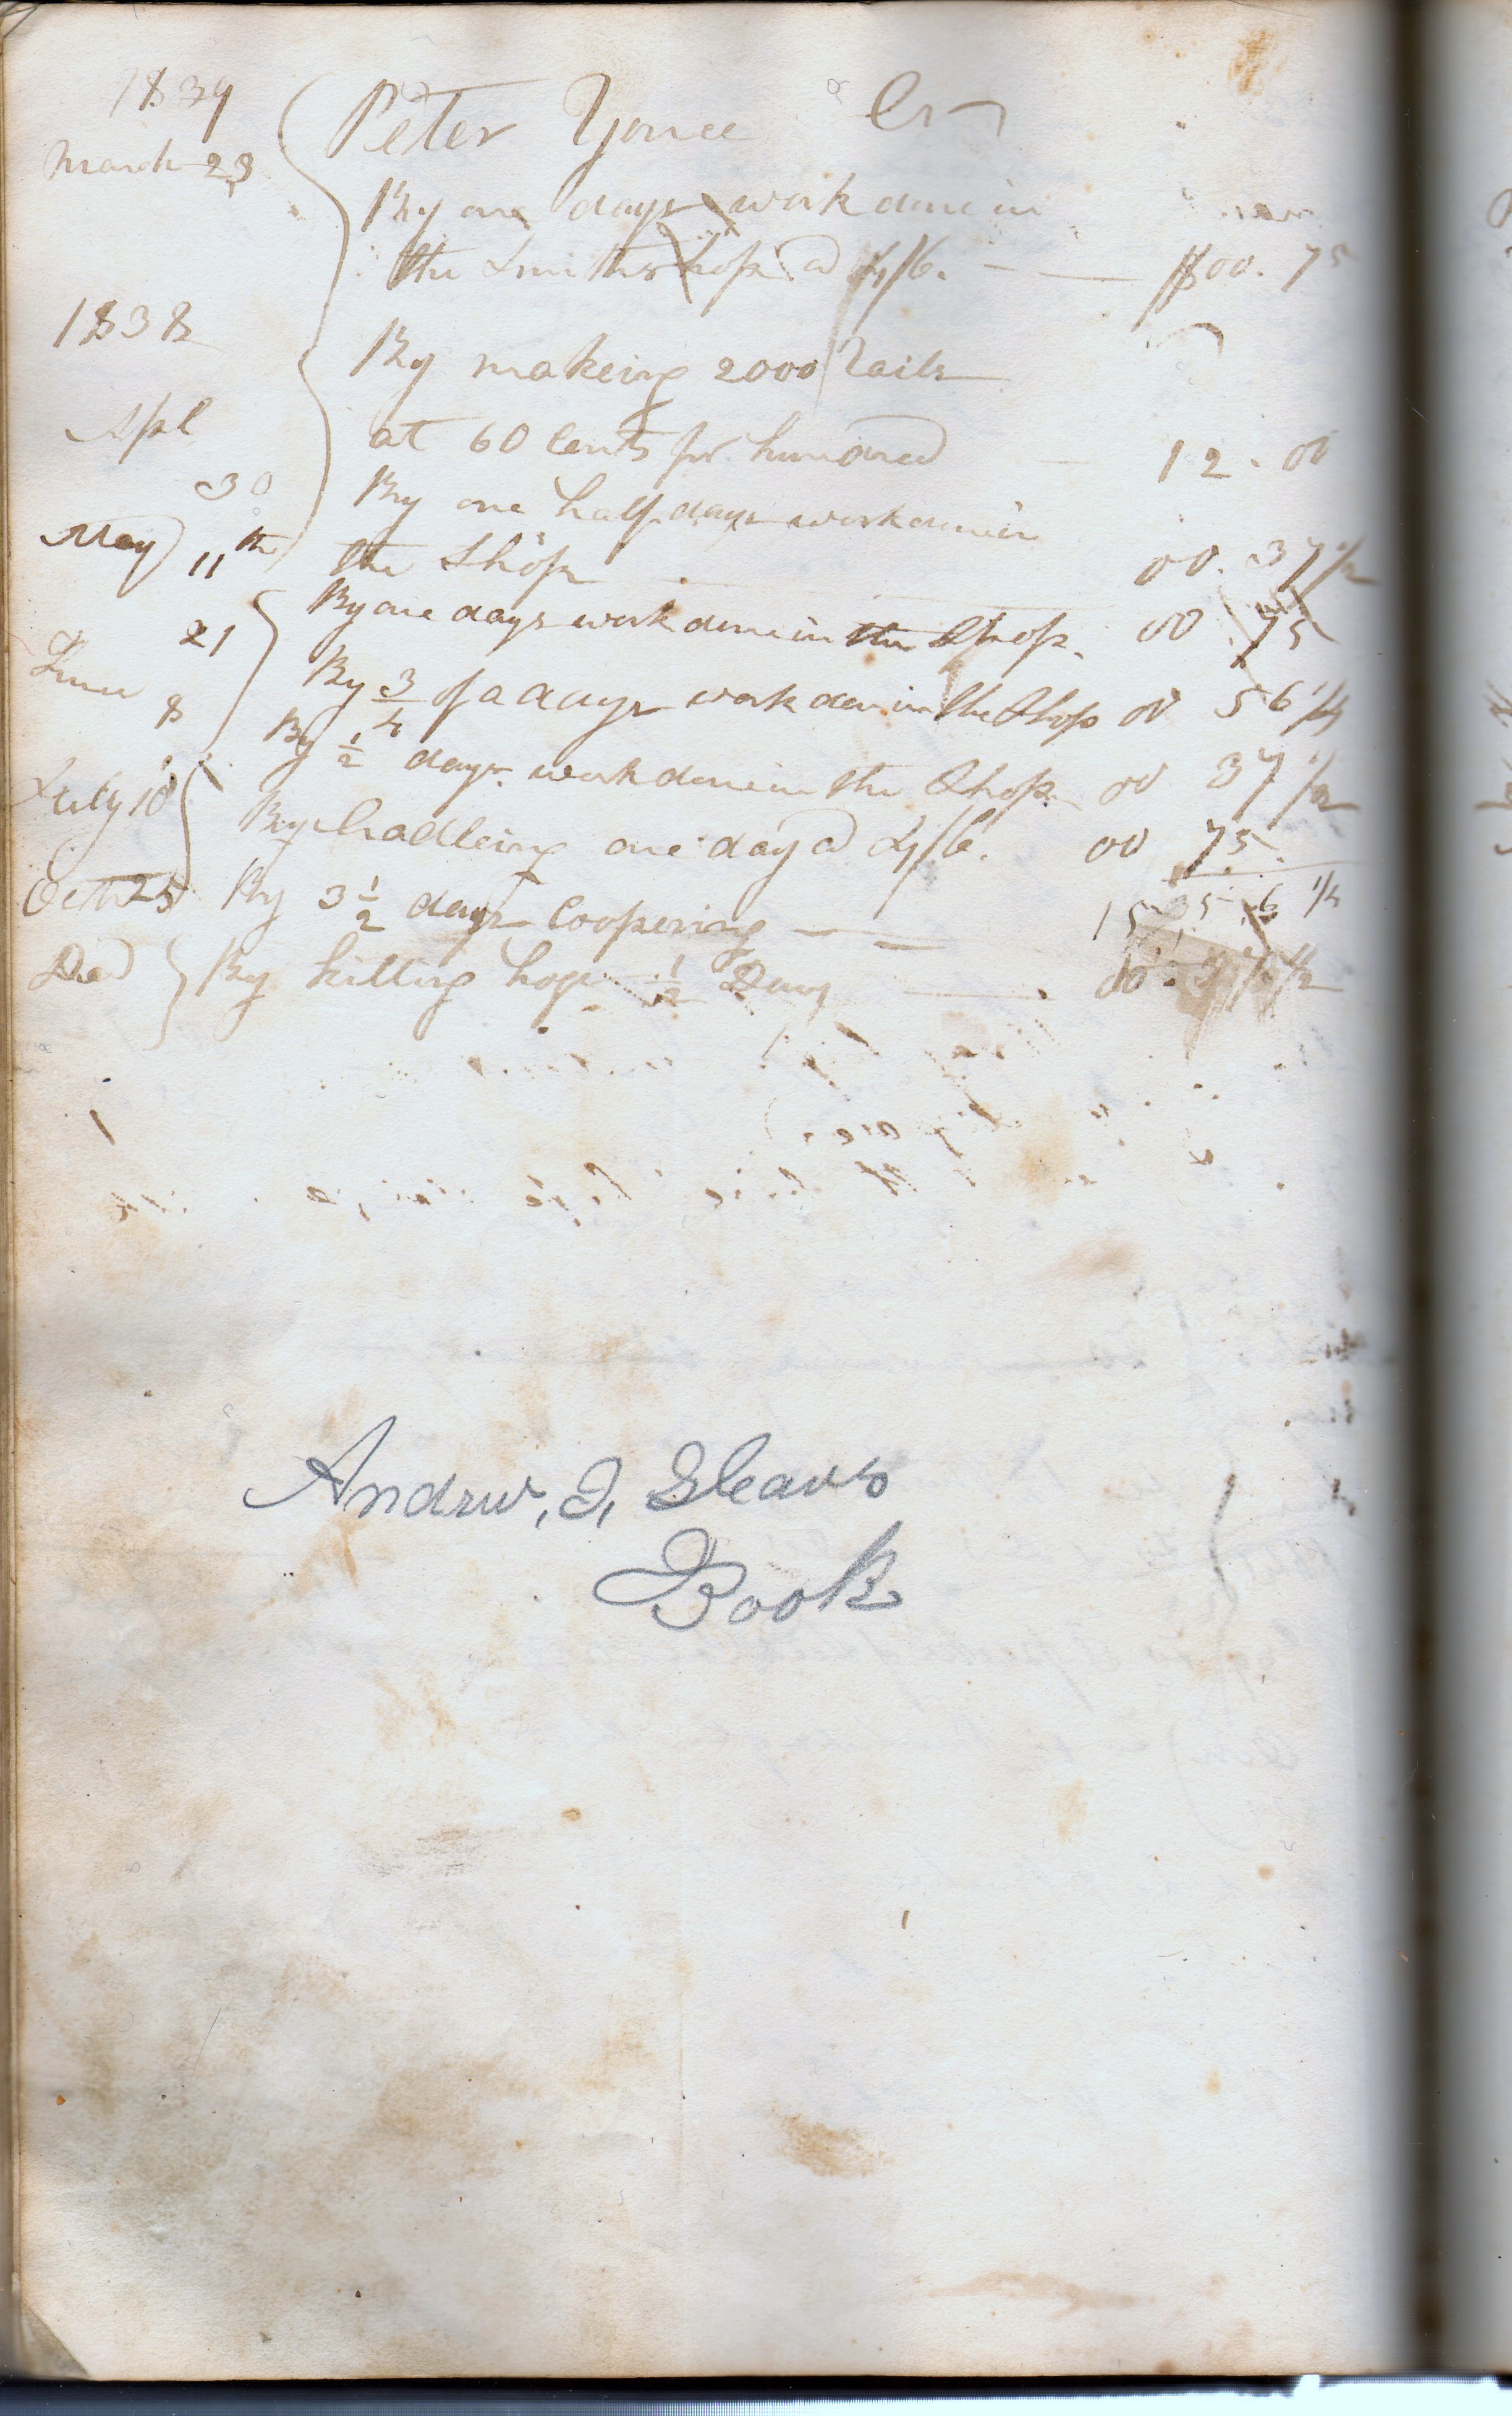 1839 Peter Yonce Cr
March 23
By one days work done in
the Smith Shop @ 4/6. $00. 75
1838 By makeing 2000 Rails
Apl at 60 Cents pr. hundred 12. 00
30 By one half days work done in
May 11th the Shop 00. 37 1/2
21 By one days work done in the Shop. 00 75
June 8 By 3/4 of a days work don in the Shop 00 56 1/4
By 1/2 days work done in the Shop 00 37 1/2
July 18 By Cradleing one day @ 4/6. 00 75
Octr 25 By 3 1/2 days Coopering 15 6 1/4
Dec By killing hogs 1/2 Day 00. 37 1/2
Andrw, J, Gleavs
Book